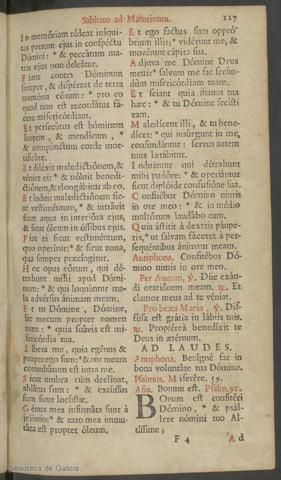 Sabbato ad Matutinum. 127
IN memóriam rédeat iníqui-
tas patrum ejus in conspéctu
Dómini: * & peccátum ma-
tris ejus non deleátur.
Fiant contra Dóminum
semper, & dispéreat de terra
memória eórum: * pro eo
quod non est recordátus fá-
cere misericórdiam.
Et persecútus est hóminem
ínopem, & mendícum, *
& compúnctum corde mor-
tificáre.
Et diléxit maledictiónem, &
véniet ei: * & nóluit benedi-
ctiónem, & elongábitur ab eo.
Et índuit maledictiónem sic-
ut vestiméntum, * & intrávit
sicut aqua in interióra ejus,
& sicut óleum in óssibus ejus.
Fiat ei sicut vestiméntum,
quo operítur: * & sicut zona,
qua semper præcíngitur.
Hoc opus eórum, qui dé-
trahunt mihi apud Dómi-
num: * & qui loquúntur ma-
la advérsus ánimam meam.
Et tu Dómine, Dómine,
fac mecum propter nomen
tuum: * quia suávis est mi-
sericórdia tua.
Líbera me, quia egénus &
pauper ego sum: * & cor meum
conturbátum est intra me.
Sicut umbra cum declínat,
ablátus sum: * & excússus
sum sicut locústæ.
Génua mea infirmáta sunt à
jejúnio: * & caro mea immu-
táta est propter óleum.
Et ego factus sum oppró-
brium illis: * vidérunt me, &
movérunt cápita sua.
Adjuva me Dómine Deus
meus: * salvum me fac secún-
dùm misericórdiam tuam.
Et sciant quia manus tua
hæc: * & tu Dómine fecísti
eam.
Maledícent illi, & tu bene-
díces: * qui insúrgunt in me,
confundántur: servus autem
tuus lætábitur.
Induántur qui détrahunt
mihi pudóre: * & operiántur
sicut diplóide confusióne sua.
Confitébor Dómino nimis
in ore meo: * & in médio
multórum laudábo eum.
Quia ástitit à dextris páupe-
ris, * ut salvam fáceret à per-
sequéntibus ánimam meam.
Antiphona. Confitébor Dó-
mino nimis in ore meo.
Per Annum, ℣. Dñe exáu-
di oratiónem meam. ℟. Et
clamor meus ad te véniat.
Pro beata Maria, ℣. Dif-
fúsa est grátia in lábiis tuis.
℟. Proptéreà benedíxit te
Deus in ætérnum.
AD LAUDES.
Antiphona. Benígnè fac in
bona voluntáte tua Dómine.
Psalmus. Miserére. 59.
Aña. Bonum est. Psalm. 91.
BOnum est confitéri
Dómino, * & psál-
lere nómini tuo Al-
tíssime;
F 4 Ad
Biblioteca de Galicia